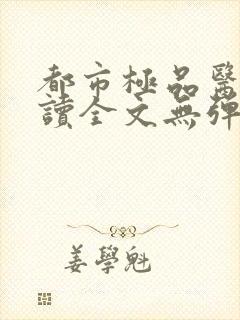 都市極品醫
讀全文無彈
姜學魁